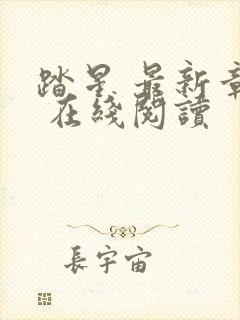 踏星 最新章
在綫閱讀
長宇宙